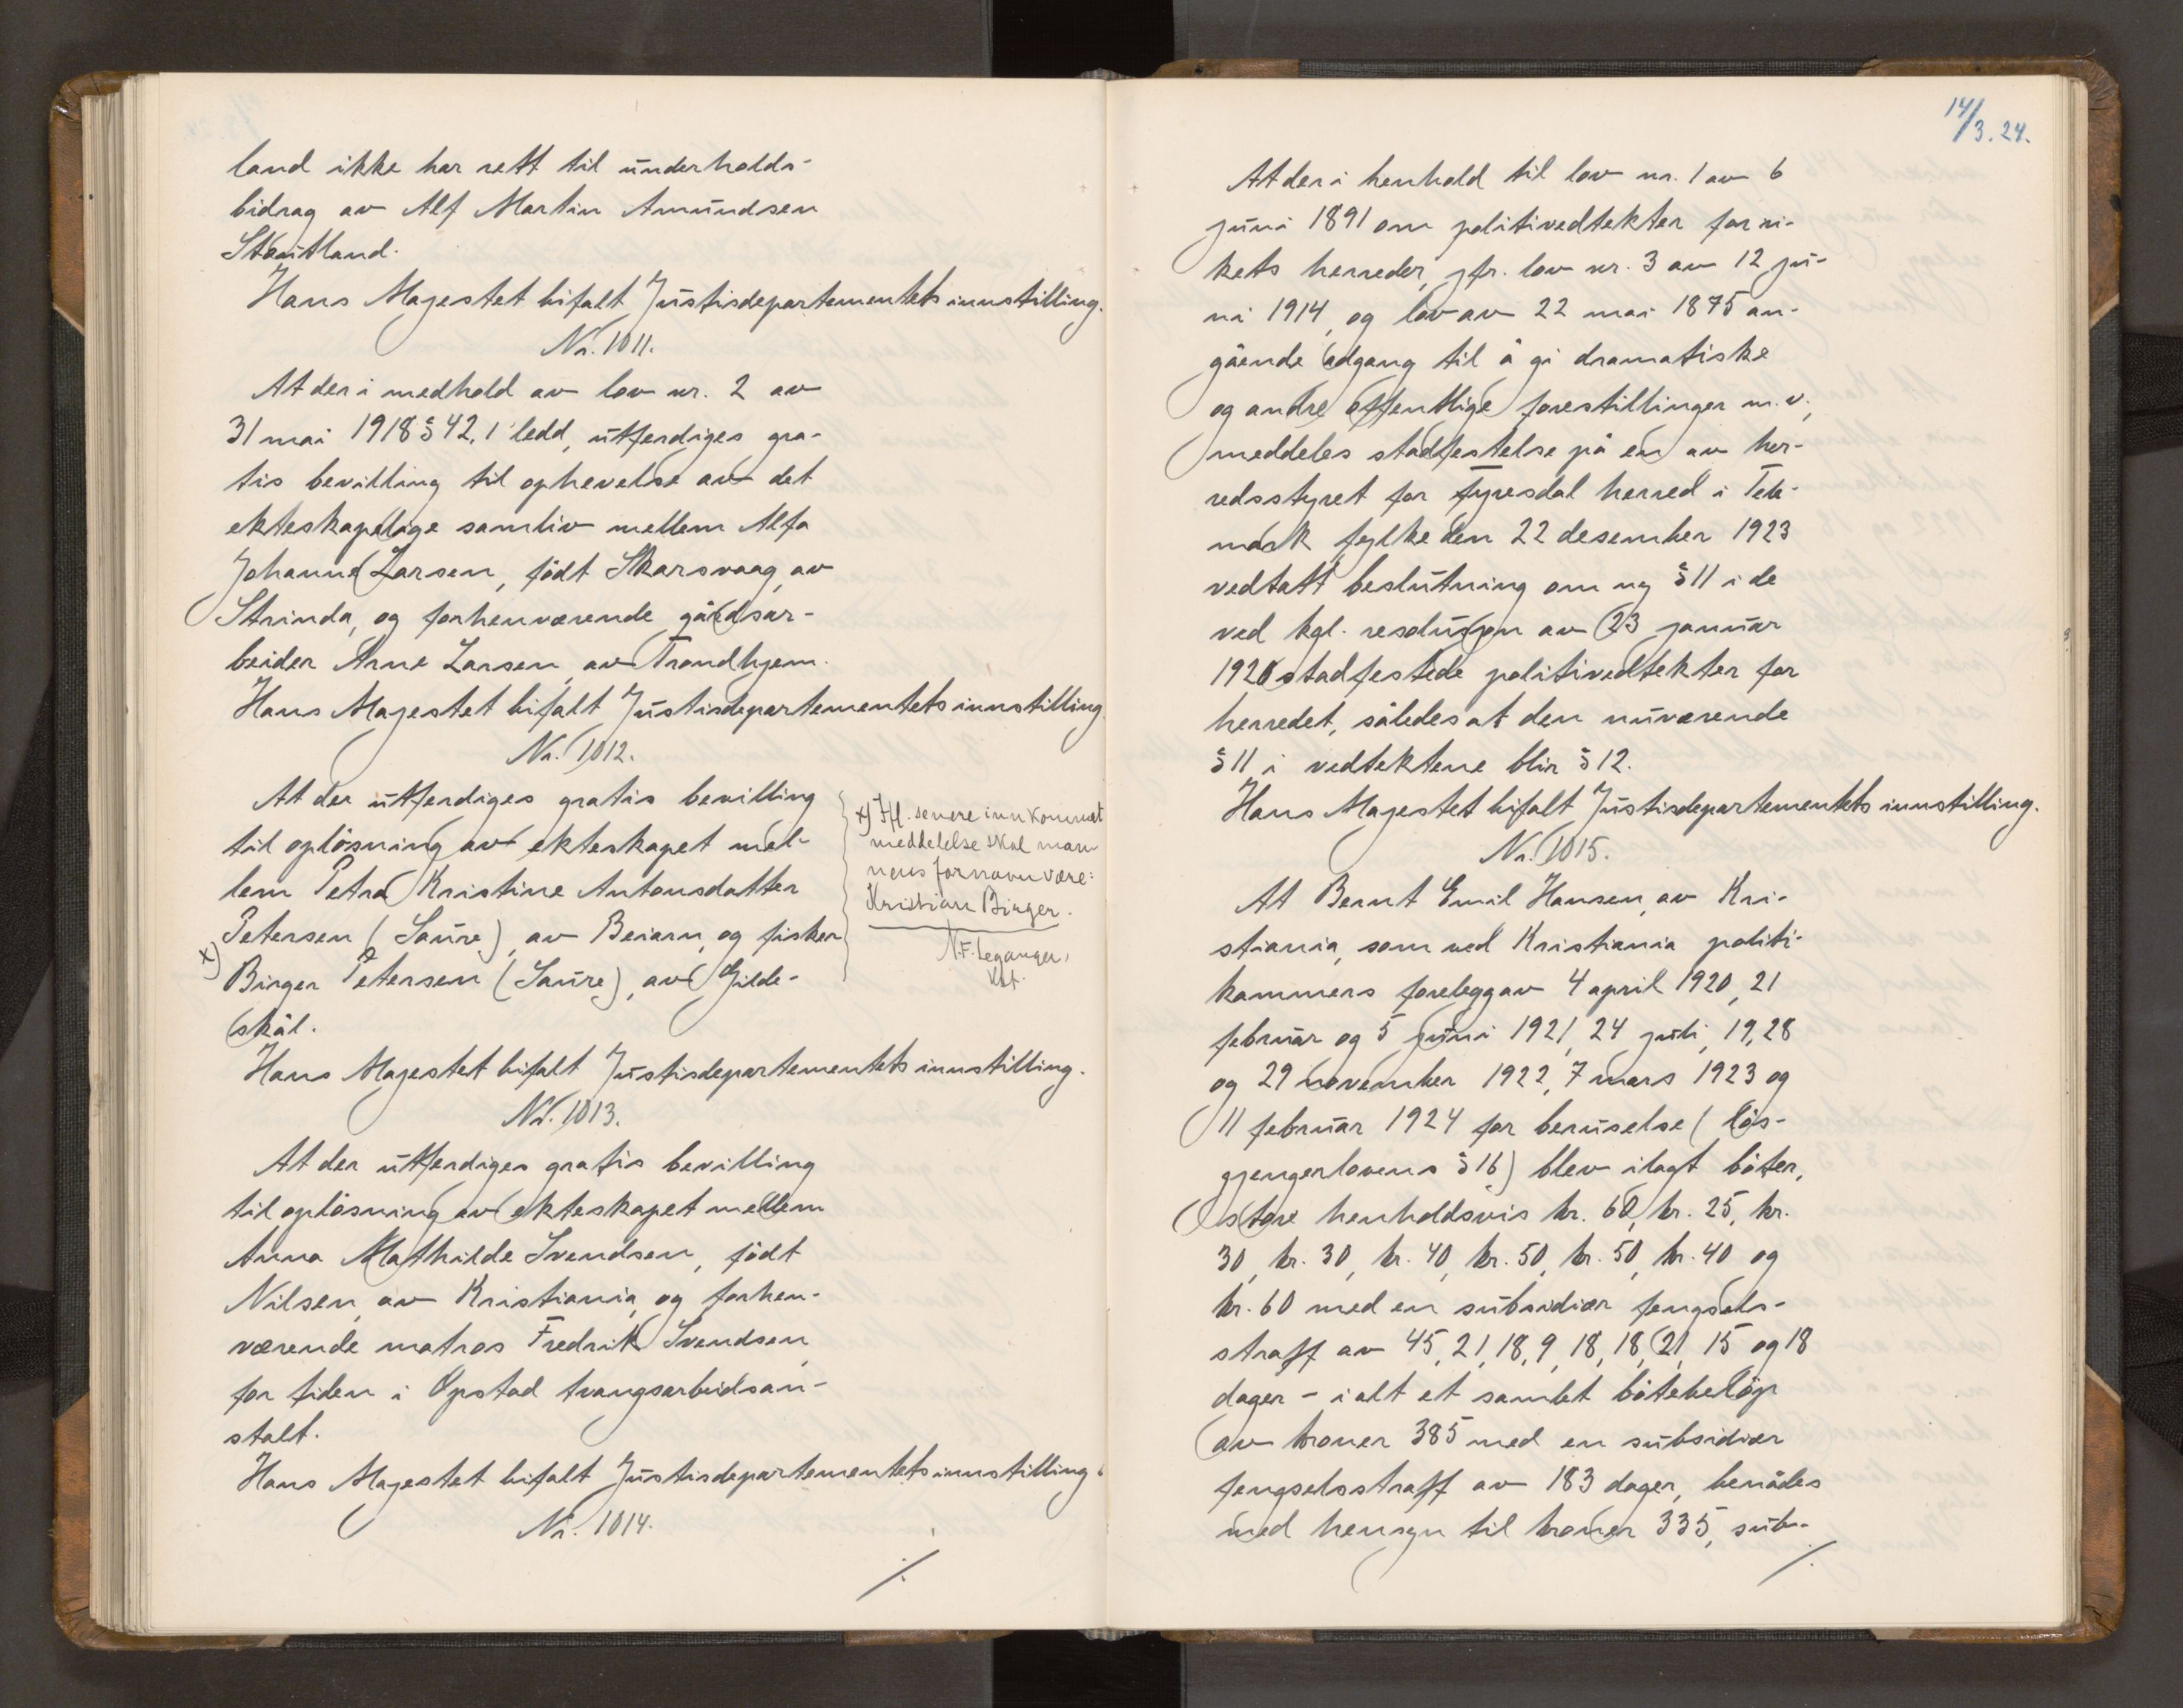 land ikke har rett til underholds-
bidrag av Alf Martin Amundsen
Stautland.
Hans Majestet bifalt Justisdepartementets innstilling.
Nr. 1011.
At der i medhold av lov nr. 2 av
31 mai 1918 § 42, 1 ledd, utferdiges gra-
tis bevilling til ophevelse av det
ekteskapelige samliv mellem Alfa
Johanne Larsen, født Skarsvaag, av
Strinda, og forhenværende gårdsar-
beider Arne Larsen, av Trondhjem.
Hans Majestet bifalt Justisdepartementets innstilling
Nr. 1012.
At der utferdiges gratis bevilling
til opløsning av ekteskapet mel-
lem Petra Kristine Antonsdatter
Petersen (Saure), av Beiarn, og fisker
x) Birger Petersen (Saure), av Gilde-
skål.
x) Ifl. senere innkommet
meddelelse skal man-
nens fornavn være:
Kristian Birger.
N.F. Leganger,
kst.
Hans Majestet bifalt Justisdepartementets innstilling.
Nr. 1013.
At der utferdiges gratis bevilling
til opløsning av ekteskapet mellem
Anna Mathilde Svendsen, født
Nilsen, av Kristiania, og forhen-
værende matros Fredrik Svendsen,
for tiden i Opstad tvangsarbeidsan-
stalt.
Hans Majestet bifalt Justisdepartementets innstilling.
Nr. 1014.
./.
14/3.24.
At der i henhold til lov nr. 1 av 6
juni 1891 om politivedtekter for ri-
kets herreder, jfr. lov nr. 3 av 12 ju-
ni 1914, og lov av 22 mai 1875 an-
gående adgang til å gi dramatiske
og andre offentlige forestillinger m.v.,
meddeles stadfestelse på en av her-
redsstyret for Fyresdal herred i Tele-
mark fylke den 22 desember 1923
vedtatt beslutning om ny § 11 i de
ved kgl. resolusjon av 23 januar
1920 stadfestede politivedtekter for
herredet, således at den nuværende
§ 11 i vedtektene blir § 12.
Hans Majestet bifalt Justisdepartementets innstilling.
Nr. 1015.
At Bernt Emil Hansen, av Kri-
stiania, som ved Kristiania politi-
kammers forelegg av 4 april 1920, 21
februar og 5 juni 1921, 24 juli, 19, 28
og 29 november 1922, 7 mars 1923 og
11 februar 1924 for beruselse (løs-
gjengerlovens § 16) blev ilagt bøter,
store henholdsvis kr. 60, kr. 25, kr.
30, kr. 30, kr. 40, kr. 50, kr. 50, kr. 40 og
kr. 60 med en subsidiær fengsels-
straff av 45, 21, 18, 9, 18, 18, 21, 15 og 18
dager - i alt et samlet bøtebeløp
av kroner 385 med en subsidiær
fengselsstraff av 183 dager, benådes
med hensyn til kroner 335, sub-
./.